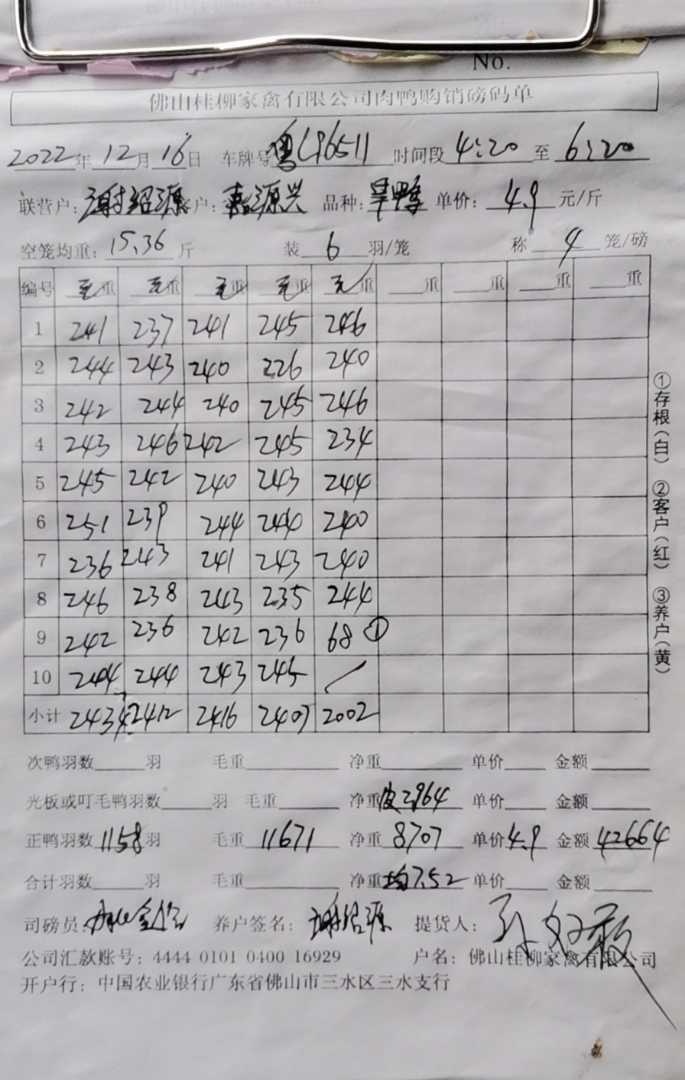 No.
佛山桂柳家禽有限公司肉鸭购销磅码单
2022年 12月 16日 车牌号 粤L96511 时间段 4:20 至 6:20
联营户: 谢绍源 客户: 源兴 品种: 旱鸭 单价: 4.9 元/斤
空笼均重: 15.36 斤 装 6 羽/笼 称 4 笼/磅
编号 毛重 毛重 毛重 毛重 毛重 重 重 重 重
1 241 237 241 245 246
2 244 243 240 226 240
3 242 244 240 245 246
4 243 246 242 245 234
5 245 242 240 243 244
6 251 239 244 244 240
7 236 243 241 243 240
8 246 238 243 235 244
9 242 236 242 236 68 ①
10 244 244 243 245 /
小计 2434 2412 2416 2407 2002
①存根(白) ②客户(红) ③养户(黄)
次鸭羽数 羽 毛重 净重 单价 金额
光板或叮毛鸭羽数 羽 毛重 净重 皮2964 单价 金额
正鸭羽数 1158 羽 毛重 11671 净重 8707 单价 4.9 金额 42664
合计羽数 羽 毛重 净重 均7.52 单价 金额
司磅员: 养户签名: 谢绍源 提货人:
公司汇款账号: 4444 0101 0400 16929 户名: 佛山桂柳家禽有限公司
开户行: 中国农业银行广东省佛山市三水区三水支行